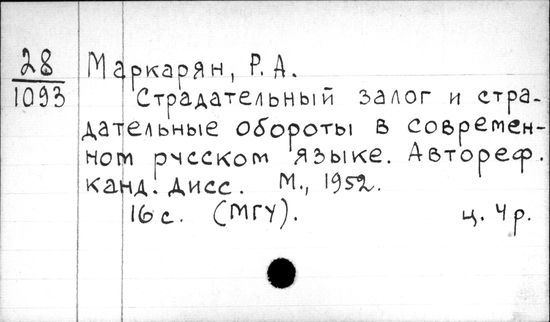 28 Маркарян, Р. А.
1093 Страдательный залог и стра-
дательные обороты в современ-
ном русском языке. Автореф.
канд. дисс. М., 1952.
16 с. (МГУ). ц. 4 р.